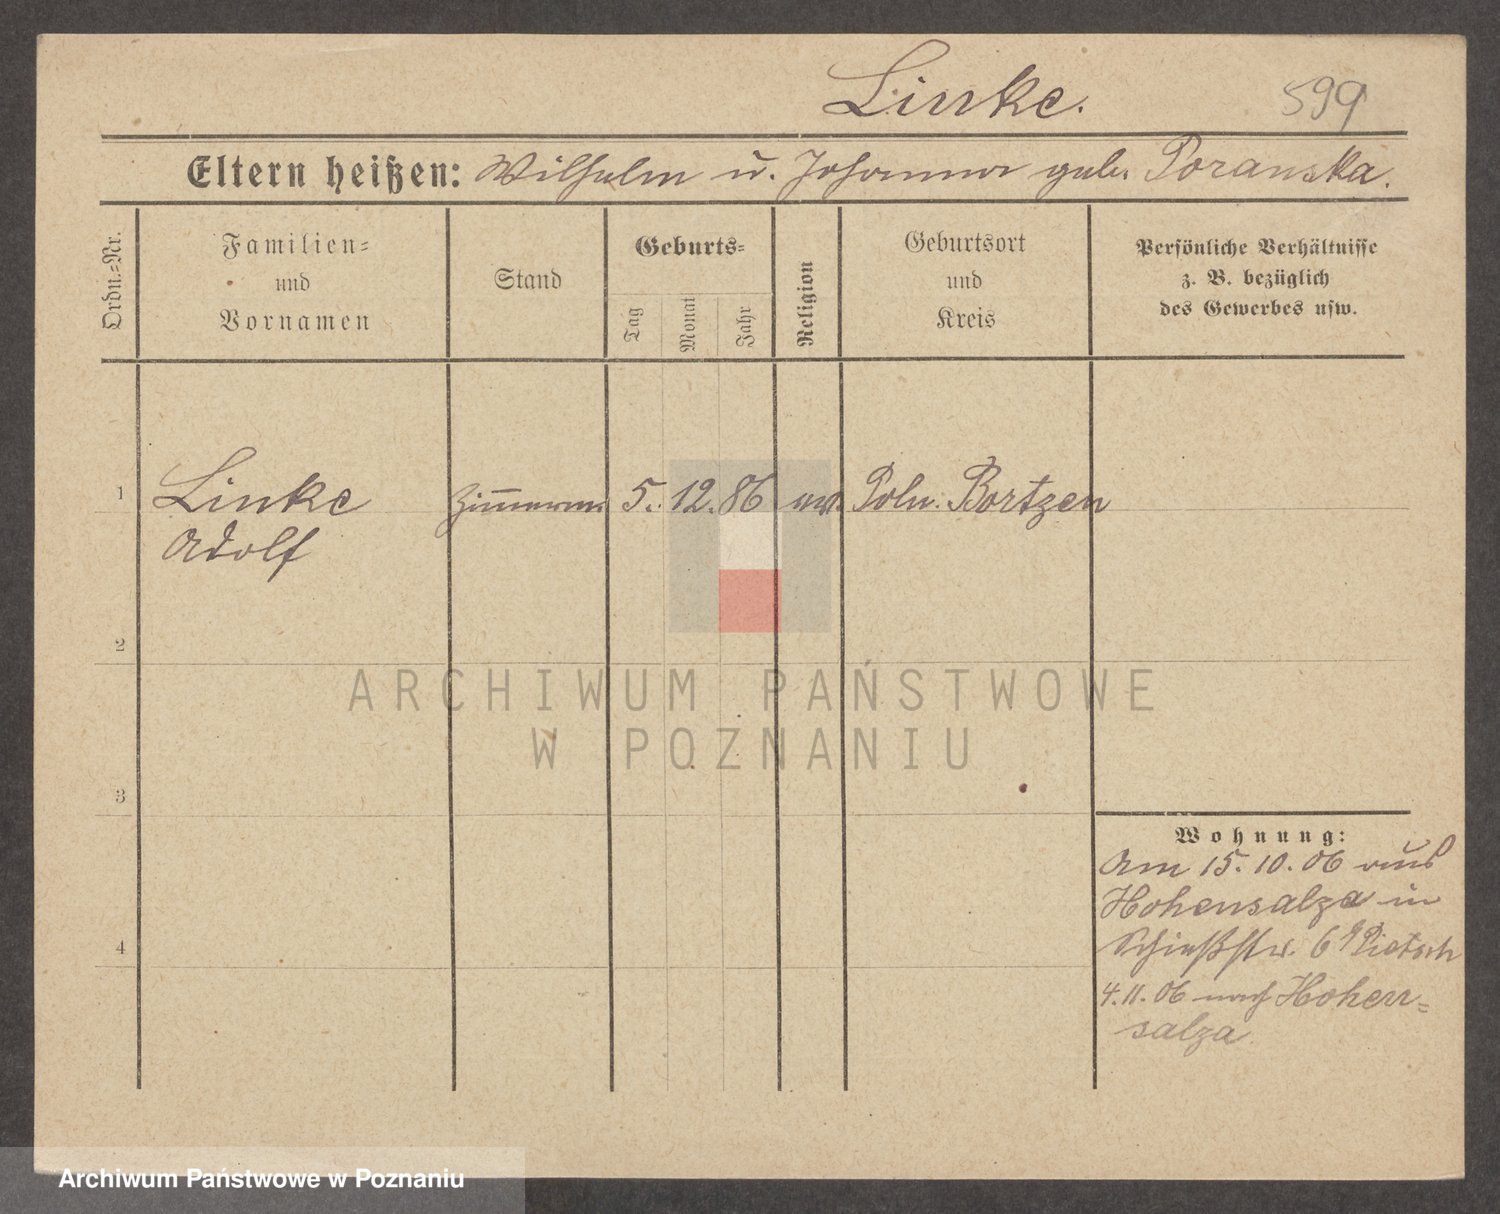 Linke.
599
Eltern heißen: Wilhelm u. Johanna geb. Poranska.
Ordn.=Nr.
Familien=
und
Vornamen
Stand
Geburts=
Tag
Monat
Jahr
Religion
Geburtsort
und
Kreis
Persönliche Verhältnisse
z. B. bezüglich
des Gewerbes usw.
1
Linke
Zimmerm. 5. 12. 86 Poln. Bortzen
Adolf
2
ARCHIWUM PAŃSTWOWE
W POZNANIU
3
Wohnung:
Am 15. 10. 06 aus
Hohensalza in
Schießstr. 6 Pietsch
4
4. 11. 06 nach Hohen=
salza
Archiwum Państwowe w Poznaniu